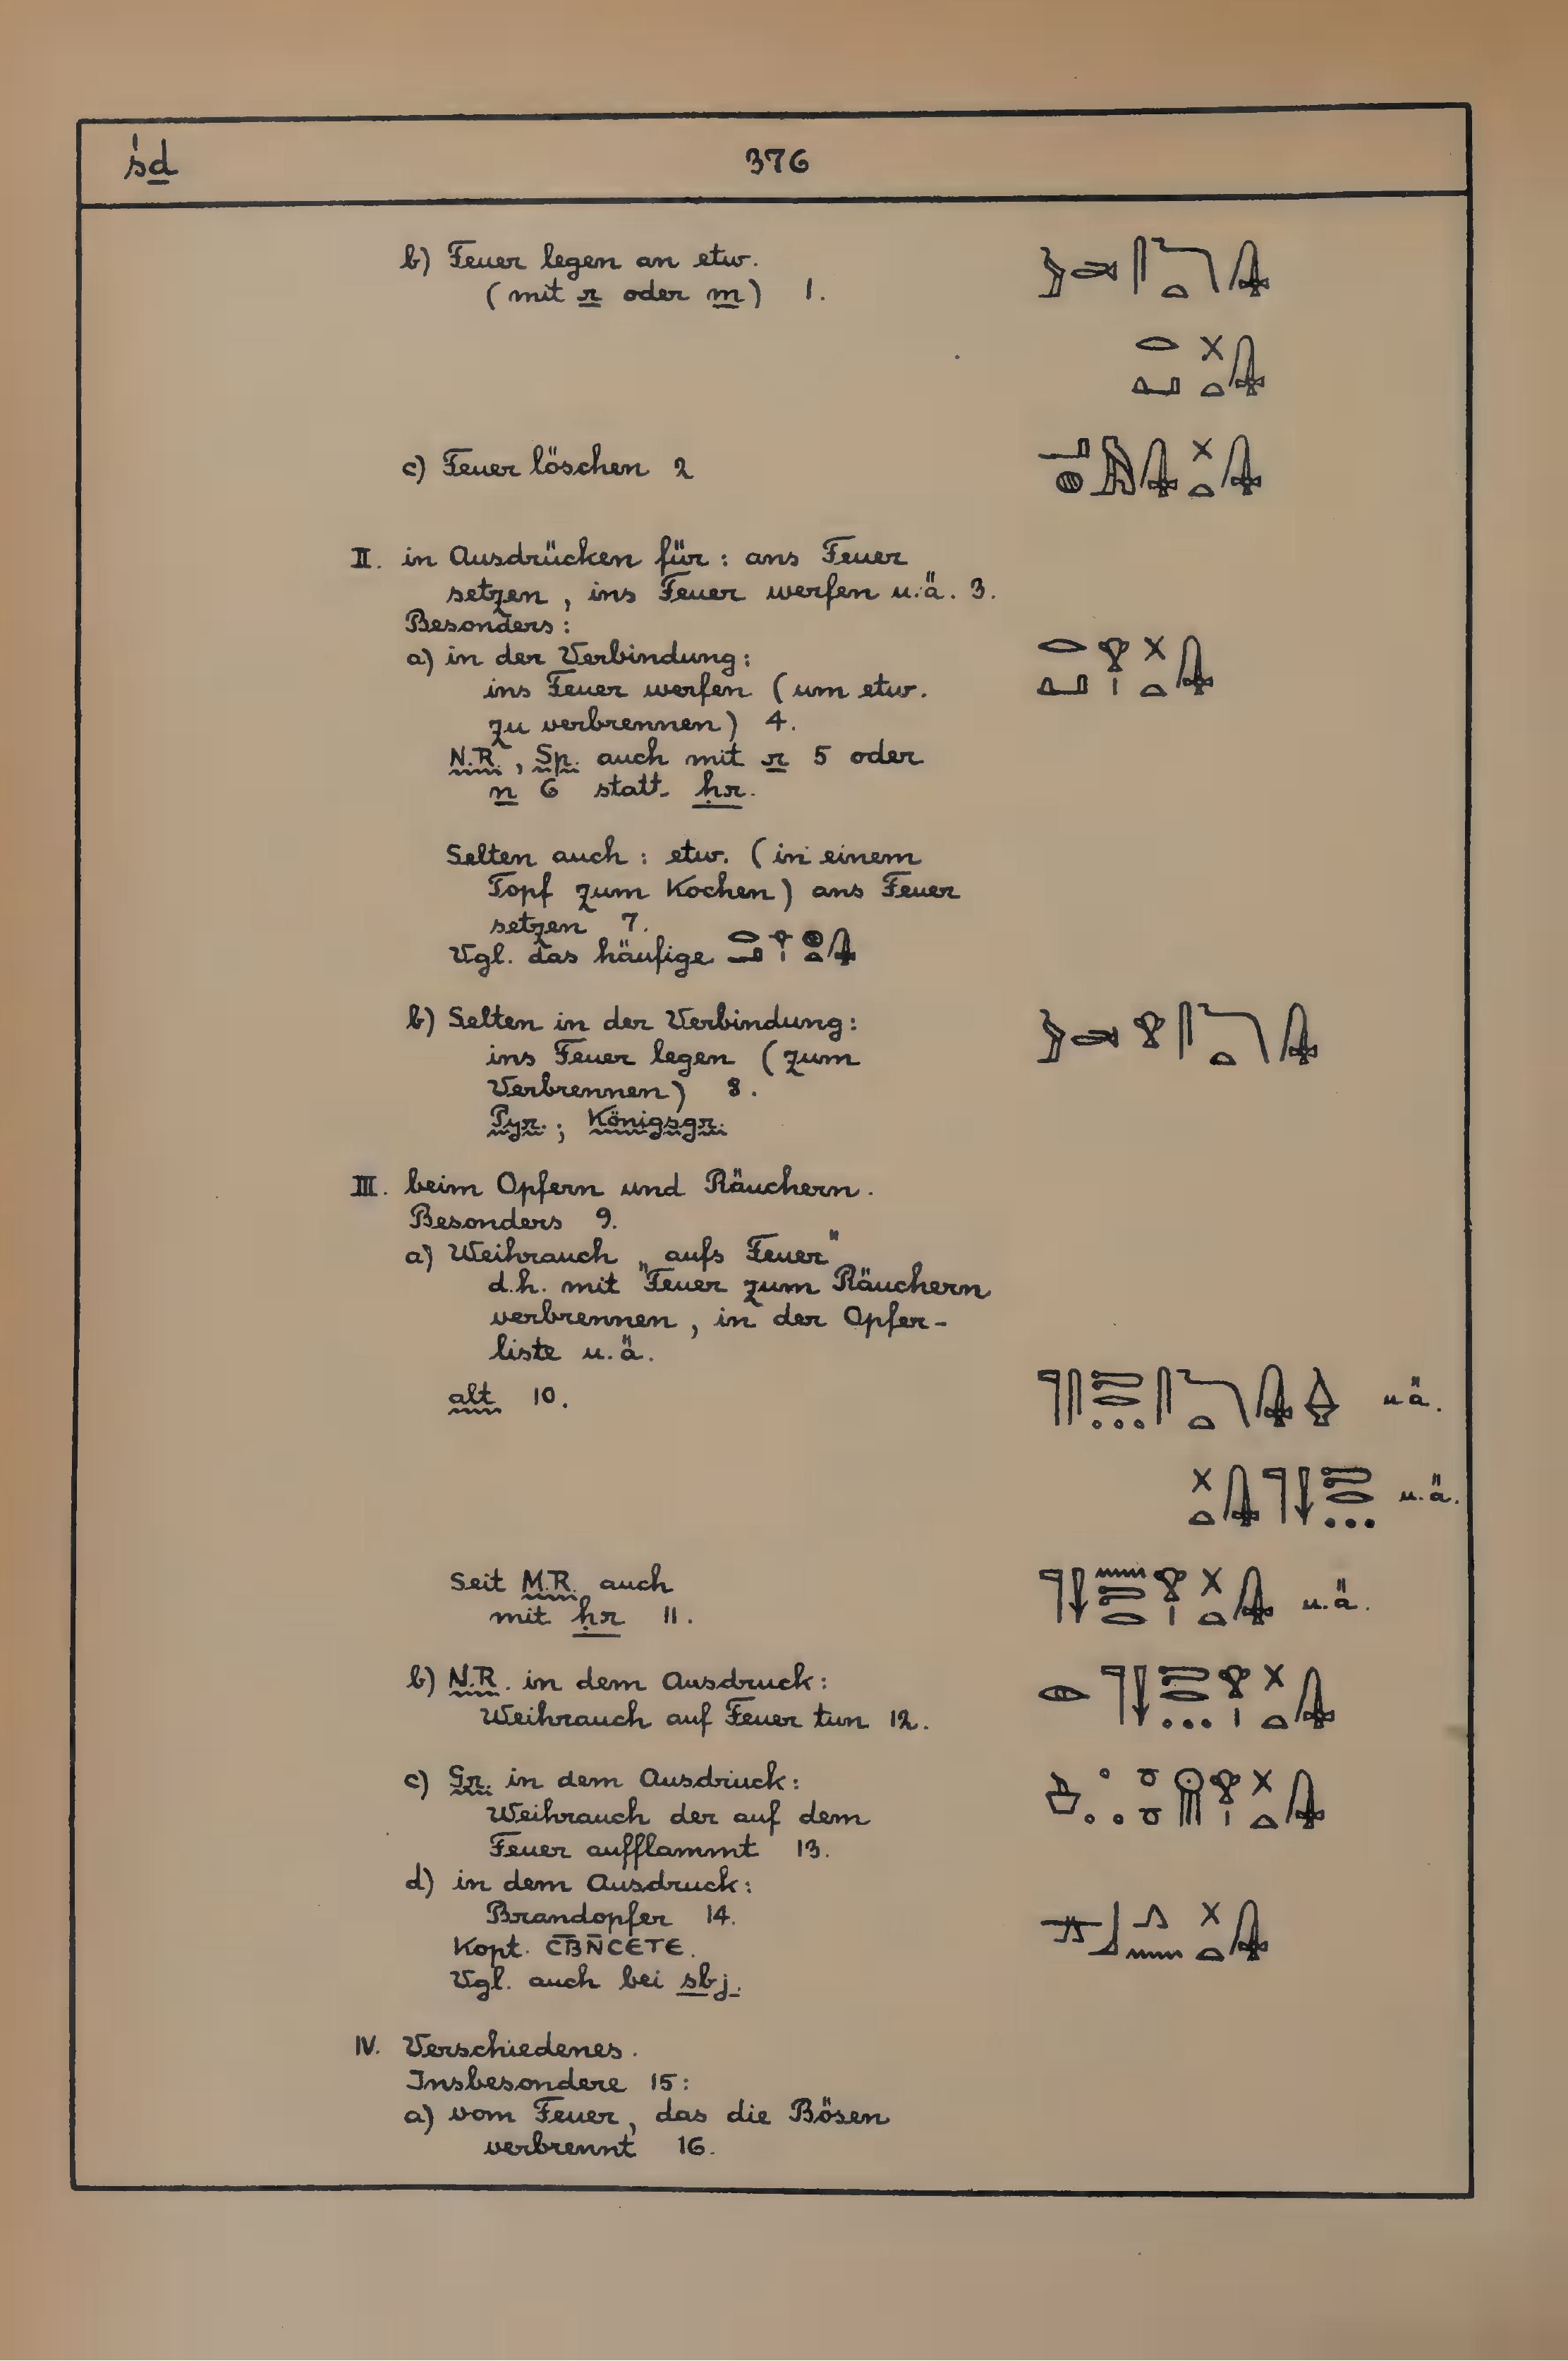 śḏ 376
b) Feuer legen an etw.
(mit r oder m) 1.
c) Feuer löschen 2
II. in Ausdrücken für: ans Feuer
setzen, ins Feuer werfen u.ä. 3.
Besonders:
a) in der Verbindung:
ins Feuer werfen (um etw.
zu verbrennen) 4.
N.R., Sp. auch mit r 5 oder
n 6 statt ḥr.
Selten auch: etw. (in einem
Topf zum Kochen) ans Feuer
setzen 7.
Vgl. das häufige
b) Selten in der Verbindung:
ins Feuer legen (zum
Verbrennen) 8.
Pyr.; Königsgr.
III. beim Opfern und Räuchern.
Besonders 9.
a) Weihrauch „aufs Feuer"
d.h. mit Feuer zum Räuchern
verbrennen, in der Opfer-
liste u.ä.
alt 10. u ä.
u.ä.
Seit M.R. auch
mit ḥr 11. u.ä.
b) N.R. in dem Ausdruck:
Weihrauch auf Feuer tun 12.
c) Gr. in dem Ausdruck:
Weihrauch der auf dem
Feuer aufflammt 13.
d) in dem Ausdruck:
Brandopfer 14.
Kopt. ⲤⲂ̅Ⲛ̅ⲤⲈⲦⲈ.
Vgl. auch bei sbj.
IV. Verschiedenes.
Insbesondere 15:
a) vom Feuer, das die Bösen
verbrennt 16.